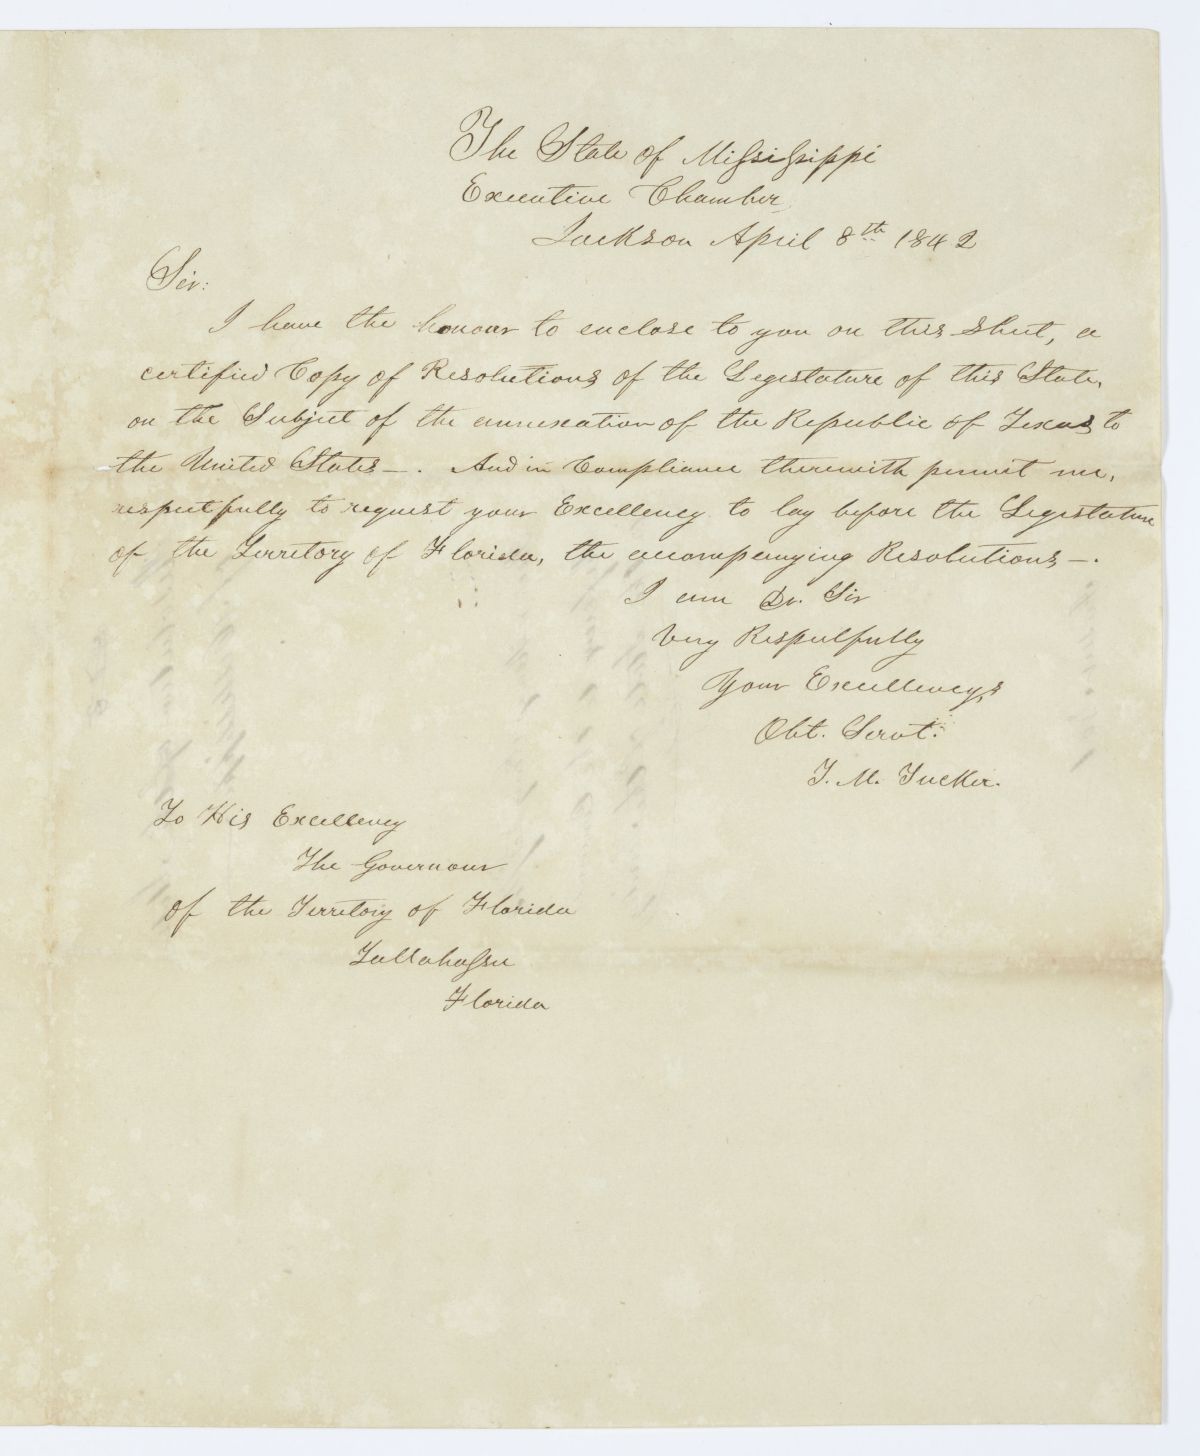 The State of Mississippi
Executive Chamber
Jackson April 8th 1842
Sir:
I have the honour to enclose to you on this Sheet, a
certified Copy of Resolutions of the Legislature of this State,
on the Subject of the annexation of the Republic of Texas to
the United States—. And in Compliance therewith permit me,
respectfully to request your Excellency to lay before the Legislature
of the Territory of Florida, the accompanying Resolutions—.
I am Dr. Sir
Very Respectfully
Your Excellency's
Obt. Servt.
T. M. Tucker.
To His Excellency
The Governour
of the Territory of Florida
Tallahassee
Florida